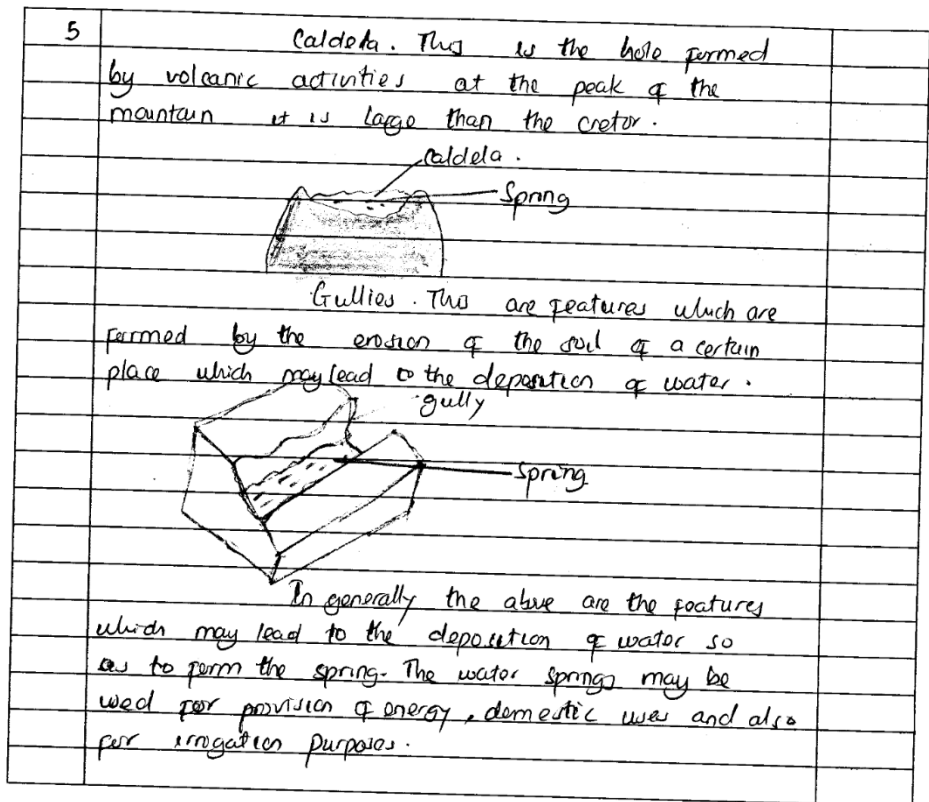 5
Caldela. This is the hole formed
by volcanic activities at the peak of the
mountain it is large than the cretor.
Caldela.
Spring
Gullies. This are features which are
formed by the erosion of the soil of a certain
place which may lead to the deposition of water.
gully
Spring
In generally the above are the features
which may lead to the deposition of water so
as to form the spring. The water springs may be
used for provision of energy, domestic uses and also
for irrogation purposes.